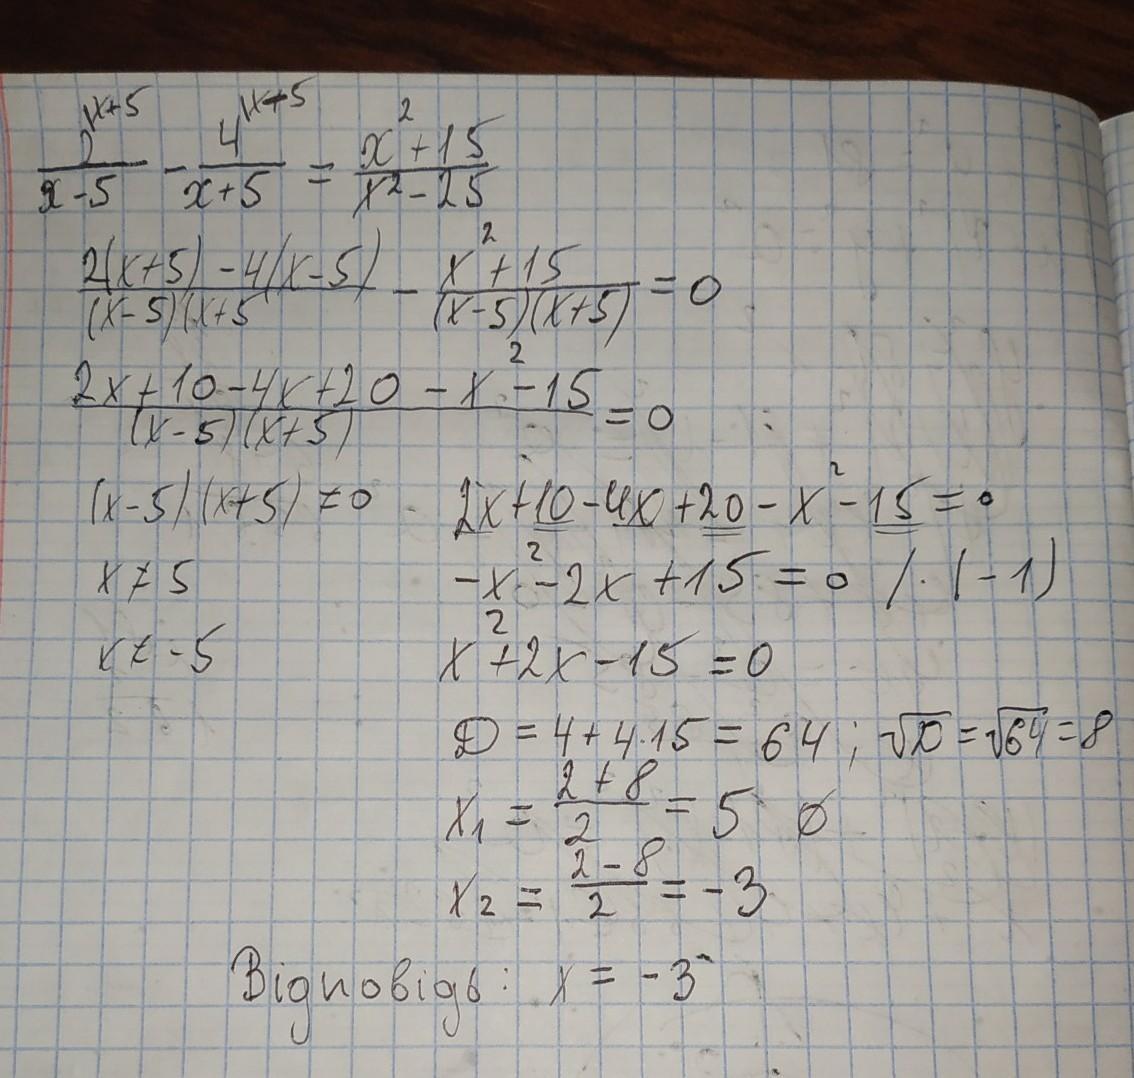 2^{|x+5}/(x-5) - 4^{|x-5}/(x+5) = (x²+15)/(x²-25)
(2(x+5)-4(x-5))/((x-5)(x+5) - (x²+15)/((x-5)(x+5)) = 0
(2x+10-4x+20-x²-15)/((x-5)(x+5)) = 0
(x-5)(x+5)≠0 2x+10-4x+20-x²-15=0
x≠5 -x²-2x+15=0 /·(-1)
x≠-5 x²+2x-15=0
D=4+4·15=64; √D=√64=8
x₁=(2+8)/2=5 ∅
x₂=(2-8)/2=-3
Відповідь: x=-3